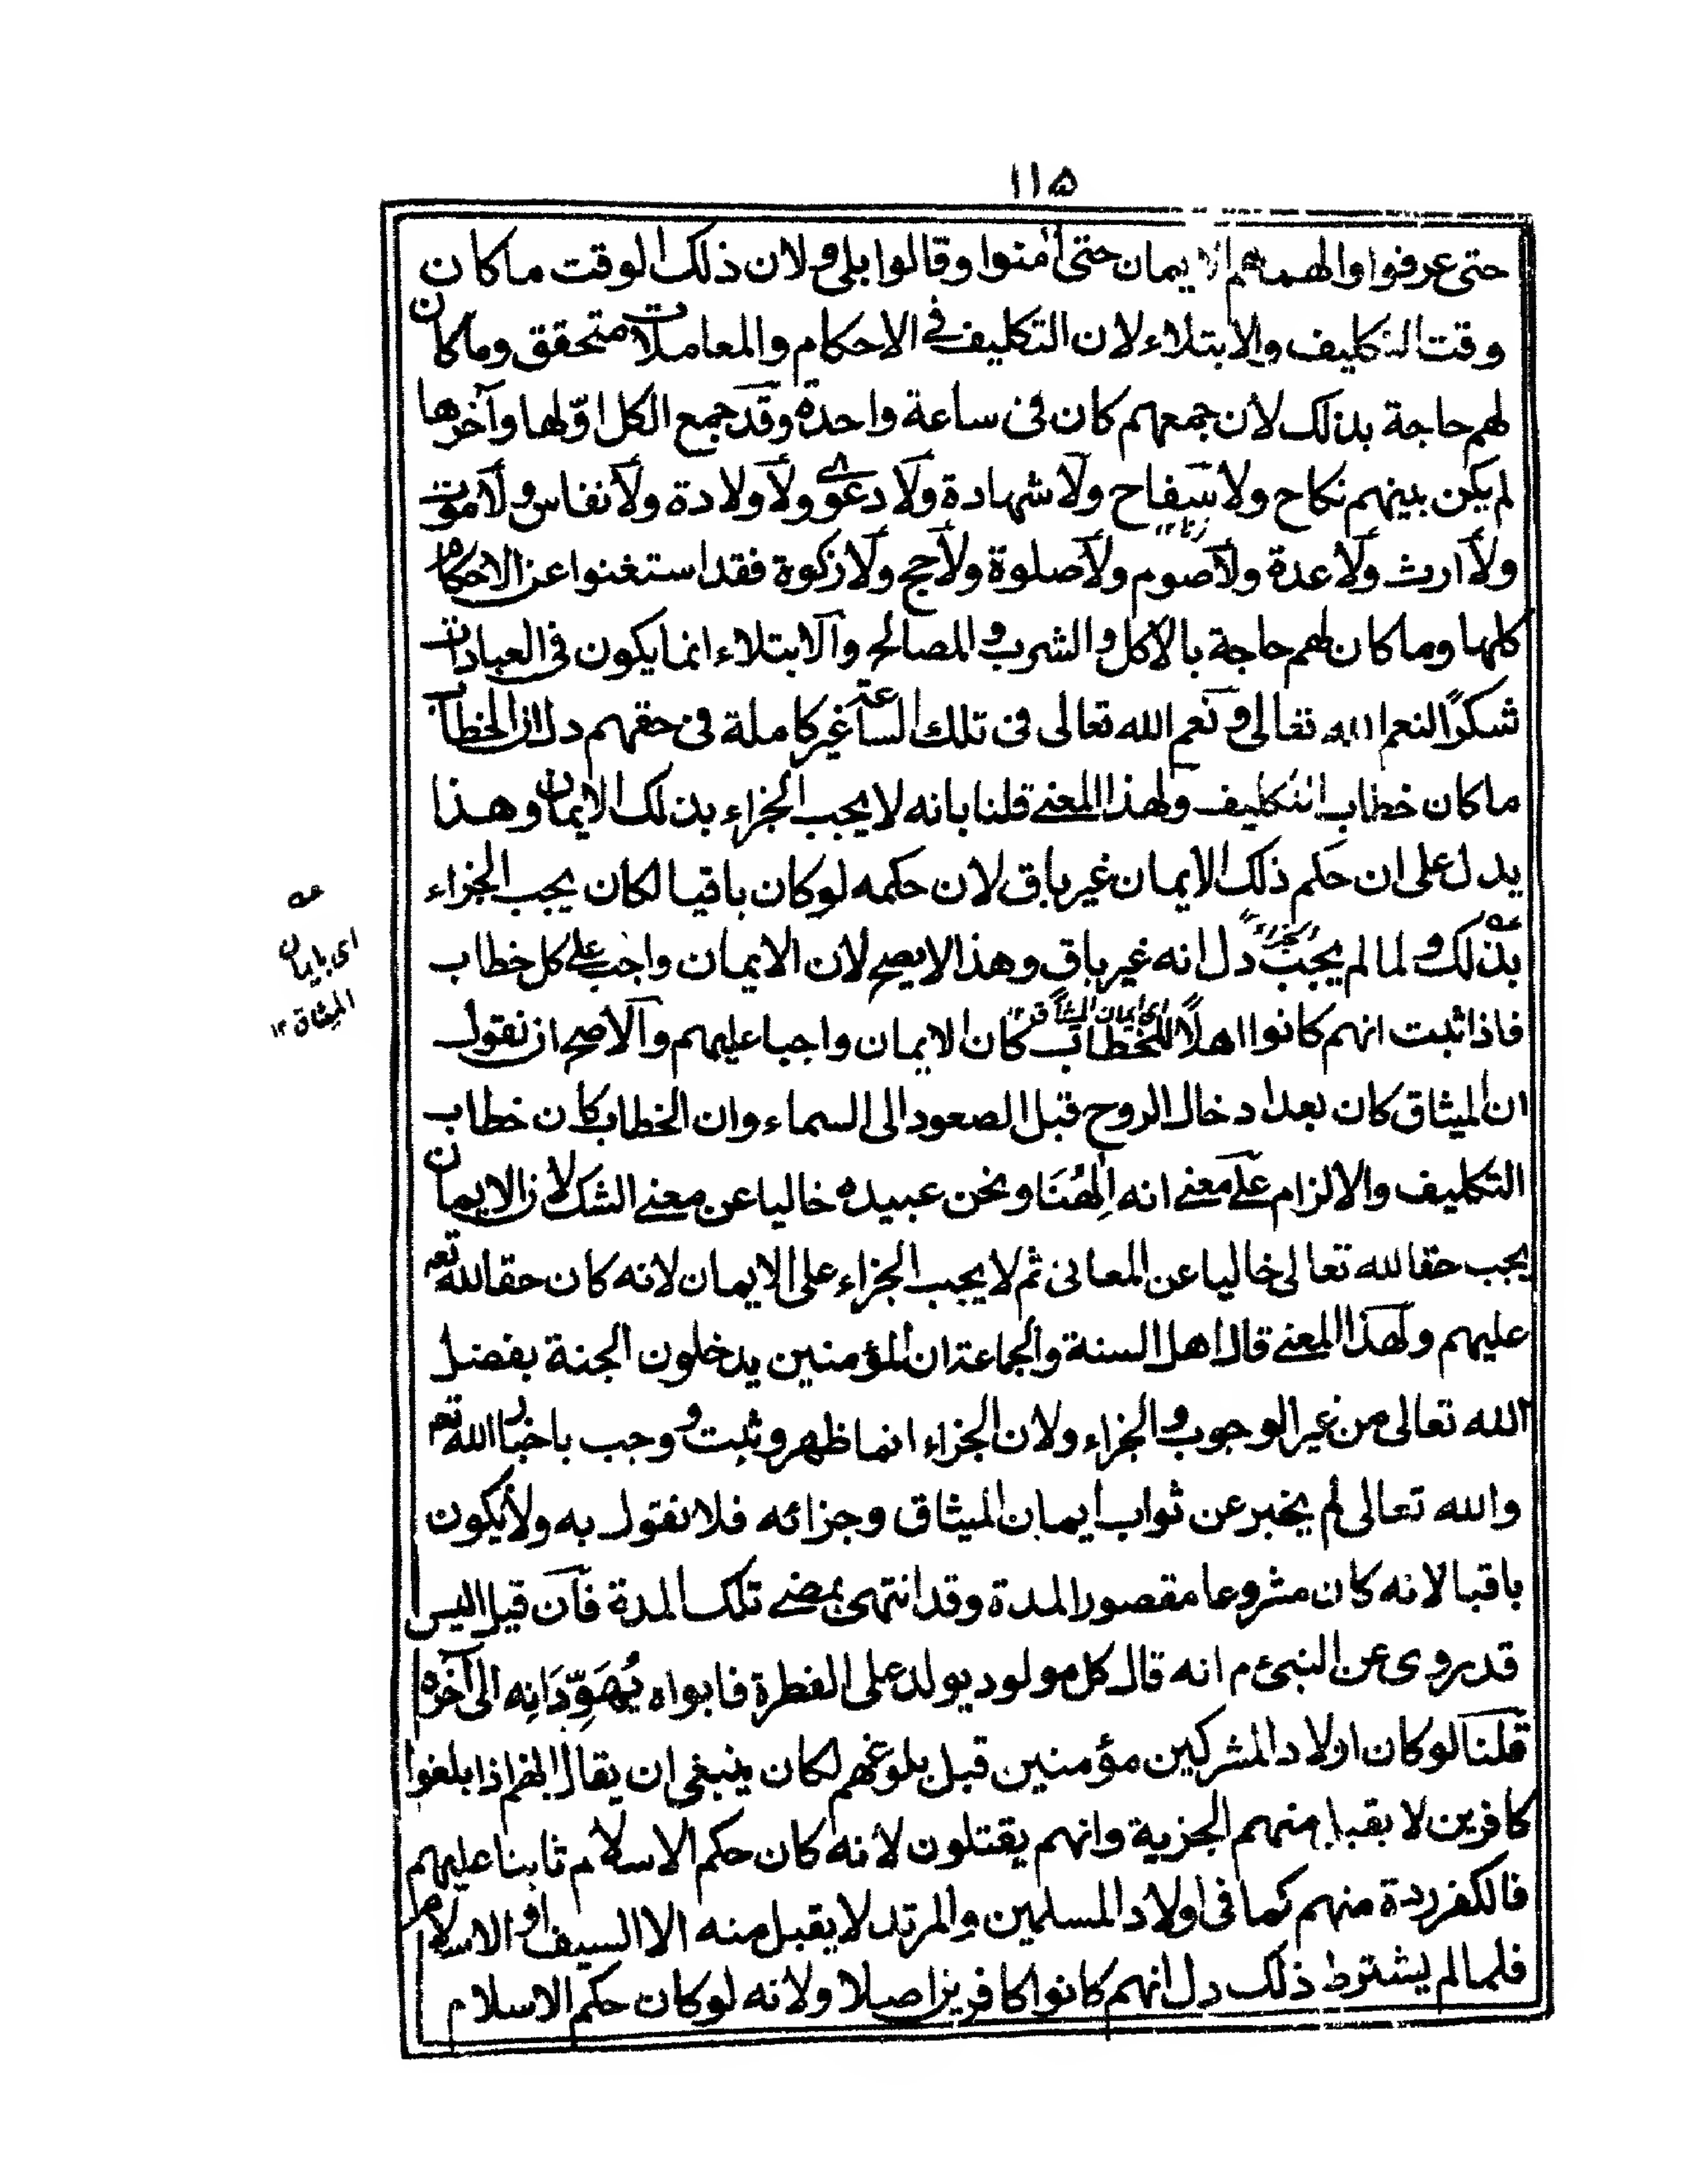 ١١٥
حتى عرفوا والهمهم الايمان حتى اٰمنوا وقالوا بلى و لان ذلك الوقت ما كان
وقت التكليف والابتلاء لان التكليف فى الاحكام والمعاملات متحقق وما كان
لهم حاجة بذلك لان جمعهم كان فى ساعة واحدة وقد جمع الكل اوّلها وآخرها
لم يكن بينهم نكاح ولا سفاح ولا شهادة ولا دعوى ولا ولادة ولا نفاس ولا موت
زنا ١٢
ولا ارث ولا عدة ولا صوم ولا صلوة ولا حج ولا زكوة فقد استغنوا عن الاحكام
كلها وما كان لهم حاجة بالاكل والشرب والمصالح والابتلاء انما يكون فى العبادات
شكرًا لنعم الله تعالى و نعم الله تعالى فى تلك الساعة غير كاملة فى حقهم دل ان الخطاب
ما كان خطاب التكليف ولهذا المعنى قلنا بانه لا يجب الجزاء بذلك الايمان وهذا
يدل على ان حكم ذلك الايمان غير باق لان حكمه لو كان باقيا لكان يجب الجزاء
بذلك و لما لم يجب دل انه غير باق وهذا لا يصح لان الايمان واجب على كل خطاب
الجزاء ١٢
فاذا ثبت انهم كانوا اهلًا للخطاب كان الايمان واجبا عليهم والاصح ان نقول
اى ايمان الميثاق ١٢
ان الميثاق كان بعد ادخال الروح قبل الصعود الى السماء وان الخطاب كان خطاب
التكليف والالزام على معنى انه اِلٰهُنَا ونحن عبيده خاليا عن معنى الشك لان الايمان
يجب حقا لله تعالى خاليا عن المعانى ثم لا يجب الجزاء على الايمان لانه كان حقا لله تعم
عليهم ولهذا المعنى قال اهل السنة والجماعة ان المؤمنين يدخلون الجنة بفضل
الله تعالى من غير الوجوب والجزاء ولان الجزاء انما ظهر وثبت و وجب باخبار الله تعم
والله تعالى لم يخبر عن ثواب ايمان الميثاق وجزائه فلا نقول به ولا يكون
باقيا لانه كان مشروعا مقصور المدة وقد انتهى بمضى تلك المدة فان قيل اليس
قد روى عن النبى م انه قال كل مولود يولد على الفطرة فابواه يُهَوِّدَانِه الى آخره
قلنا لو كان اولاد المشركين مؤمنين قبل بلوغهم لكان ينبغى ان يقال لهم اذا بلغوا
كافرين لا يقبل منهم الجزية وانهم يقتلون لانه كان حكم الاسلام ثابتا عليهم
فالكفر ردة منهم كما فى اولاد المسلمين والمرتد لا يقبل منه الا السيف او الاسلام
فلما لم يشترط ذلك دل انهم كانوا كافرين اصلا ولانه لو كان حكم الاسلام
عه
اى بايمان
الميثاق ١٢